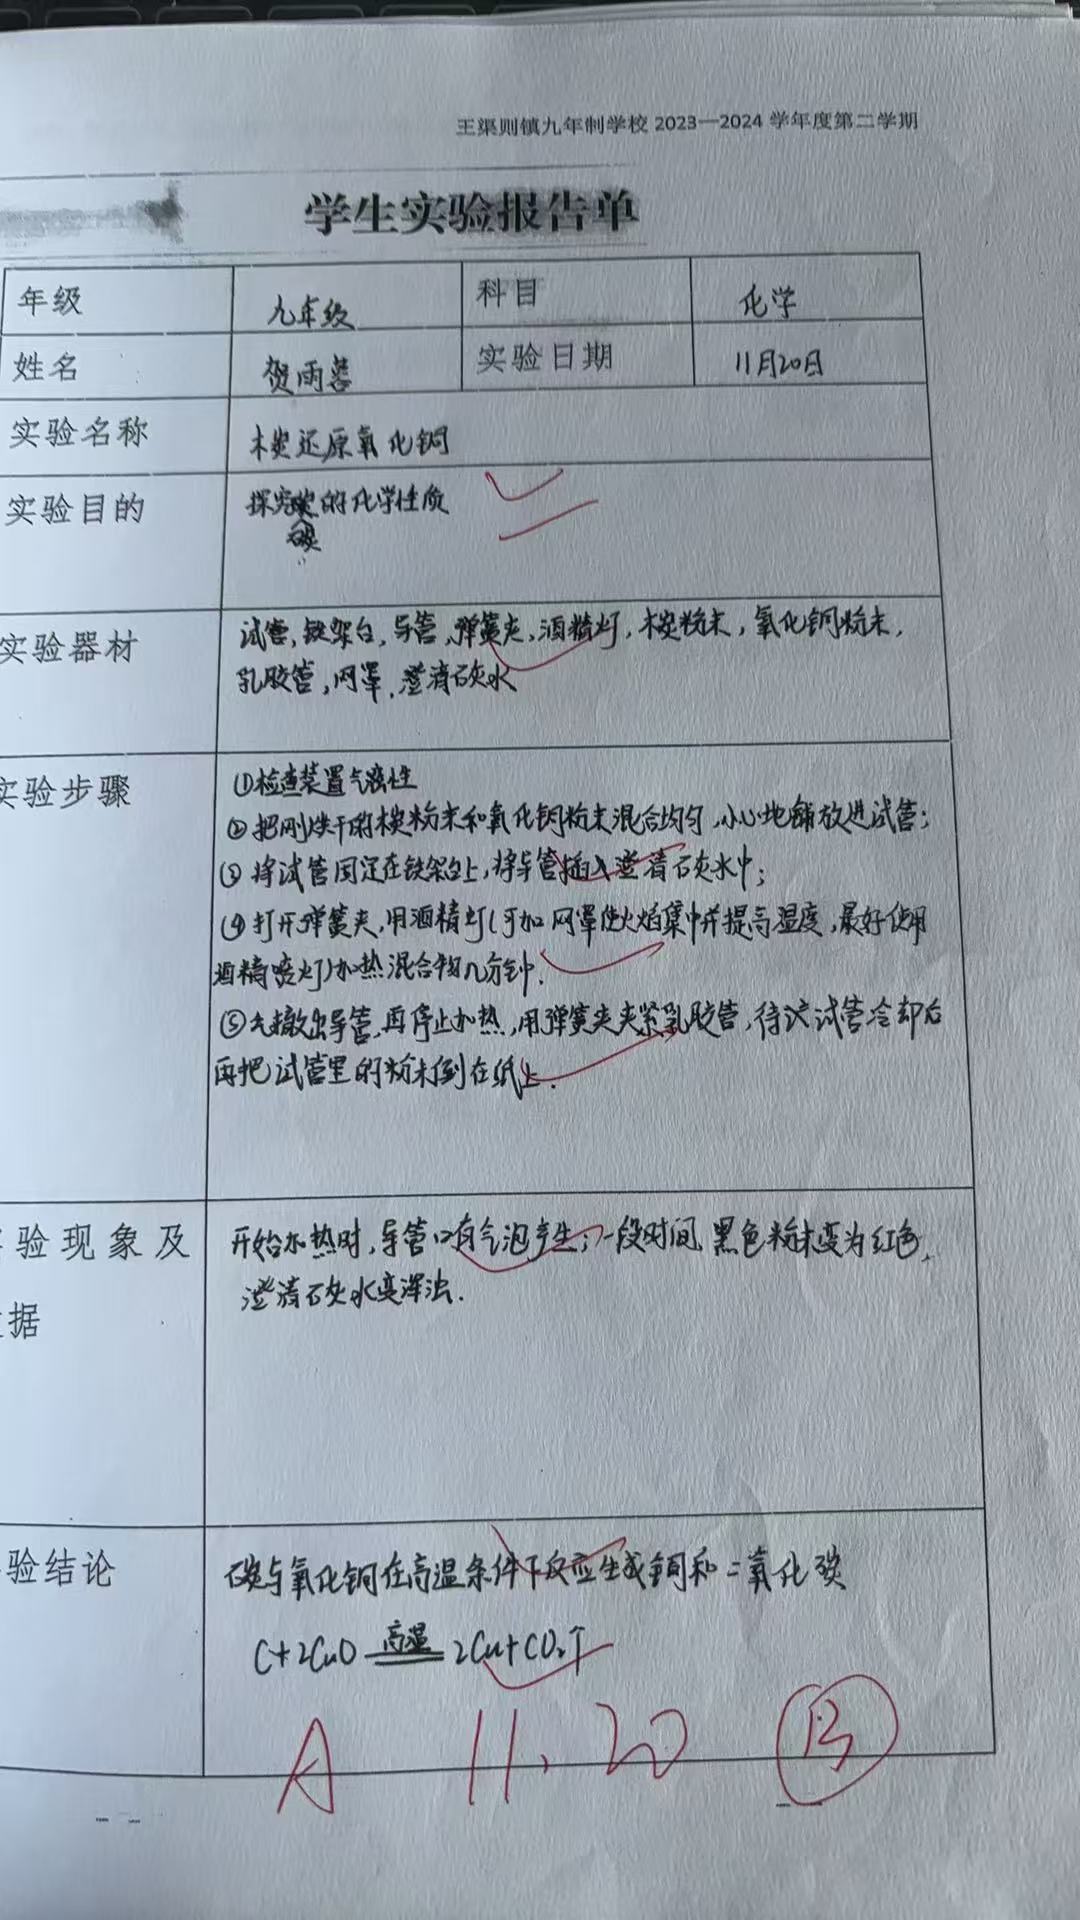 王渠则镇九年制学校 2023—2024 学年度第二学期
学生实验报告单
年级 九年级 科目 化学
姓名 贺雨蓉 实验日期 11月20日
实验名称 木炭还原氧化铜
实验目的 探究碳的化学性质
实验器材 试管,铁架台,导管,弹簧夹,酒精灯,木炭粉末,氧化铜粉末,
乳胶管,网罩,澄清石灰水
实验步骤 ①检查装置气密性
②把刚烘干的木炭粉末和氧化铜粉末混合均匀,小心地铺放进试管;
③将试管固定在铁架台上,将导管插入澄清石灰水中;
④打开弹簧夹,用酒精灯(可加网罩使火焰集中并提高温度,最好使用
酒精喷灯)加热混合物几分钟.
⑤先撤出导管,再停止加热,用弹簧夹夹紧乳胶管,待试管冷却后
再把试管里的粉末倒在纸上.
验现象及 开始加热时,导管口有气泡产生;一段时间,黑色粉末变为红色,
澄清石灰水变浑浊.
据
验结论 碳与氧化铜在高温条件下反应生成铜和二氧化碳
C+2CuO 高温 2Cu+CO₂↑
A 11.20